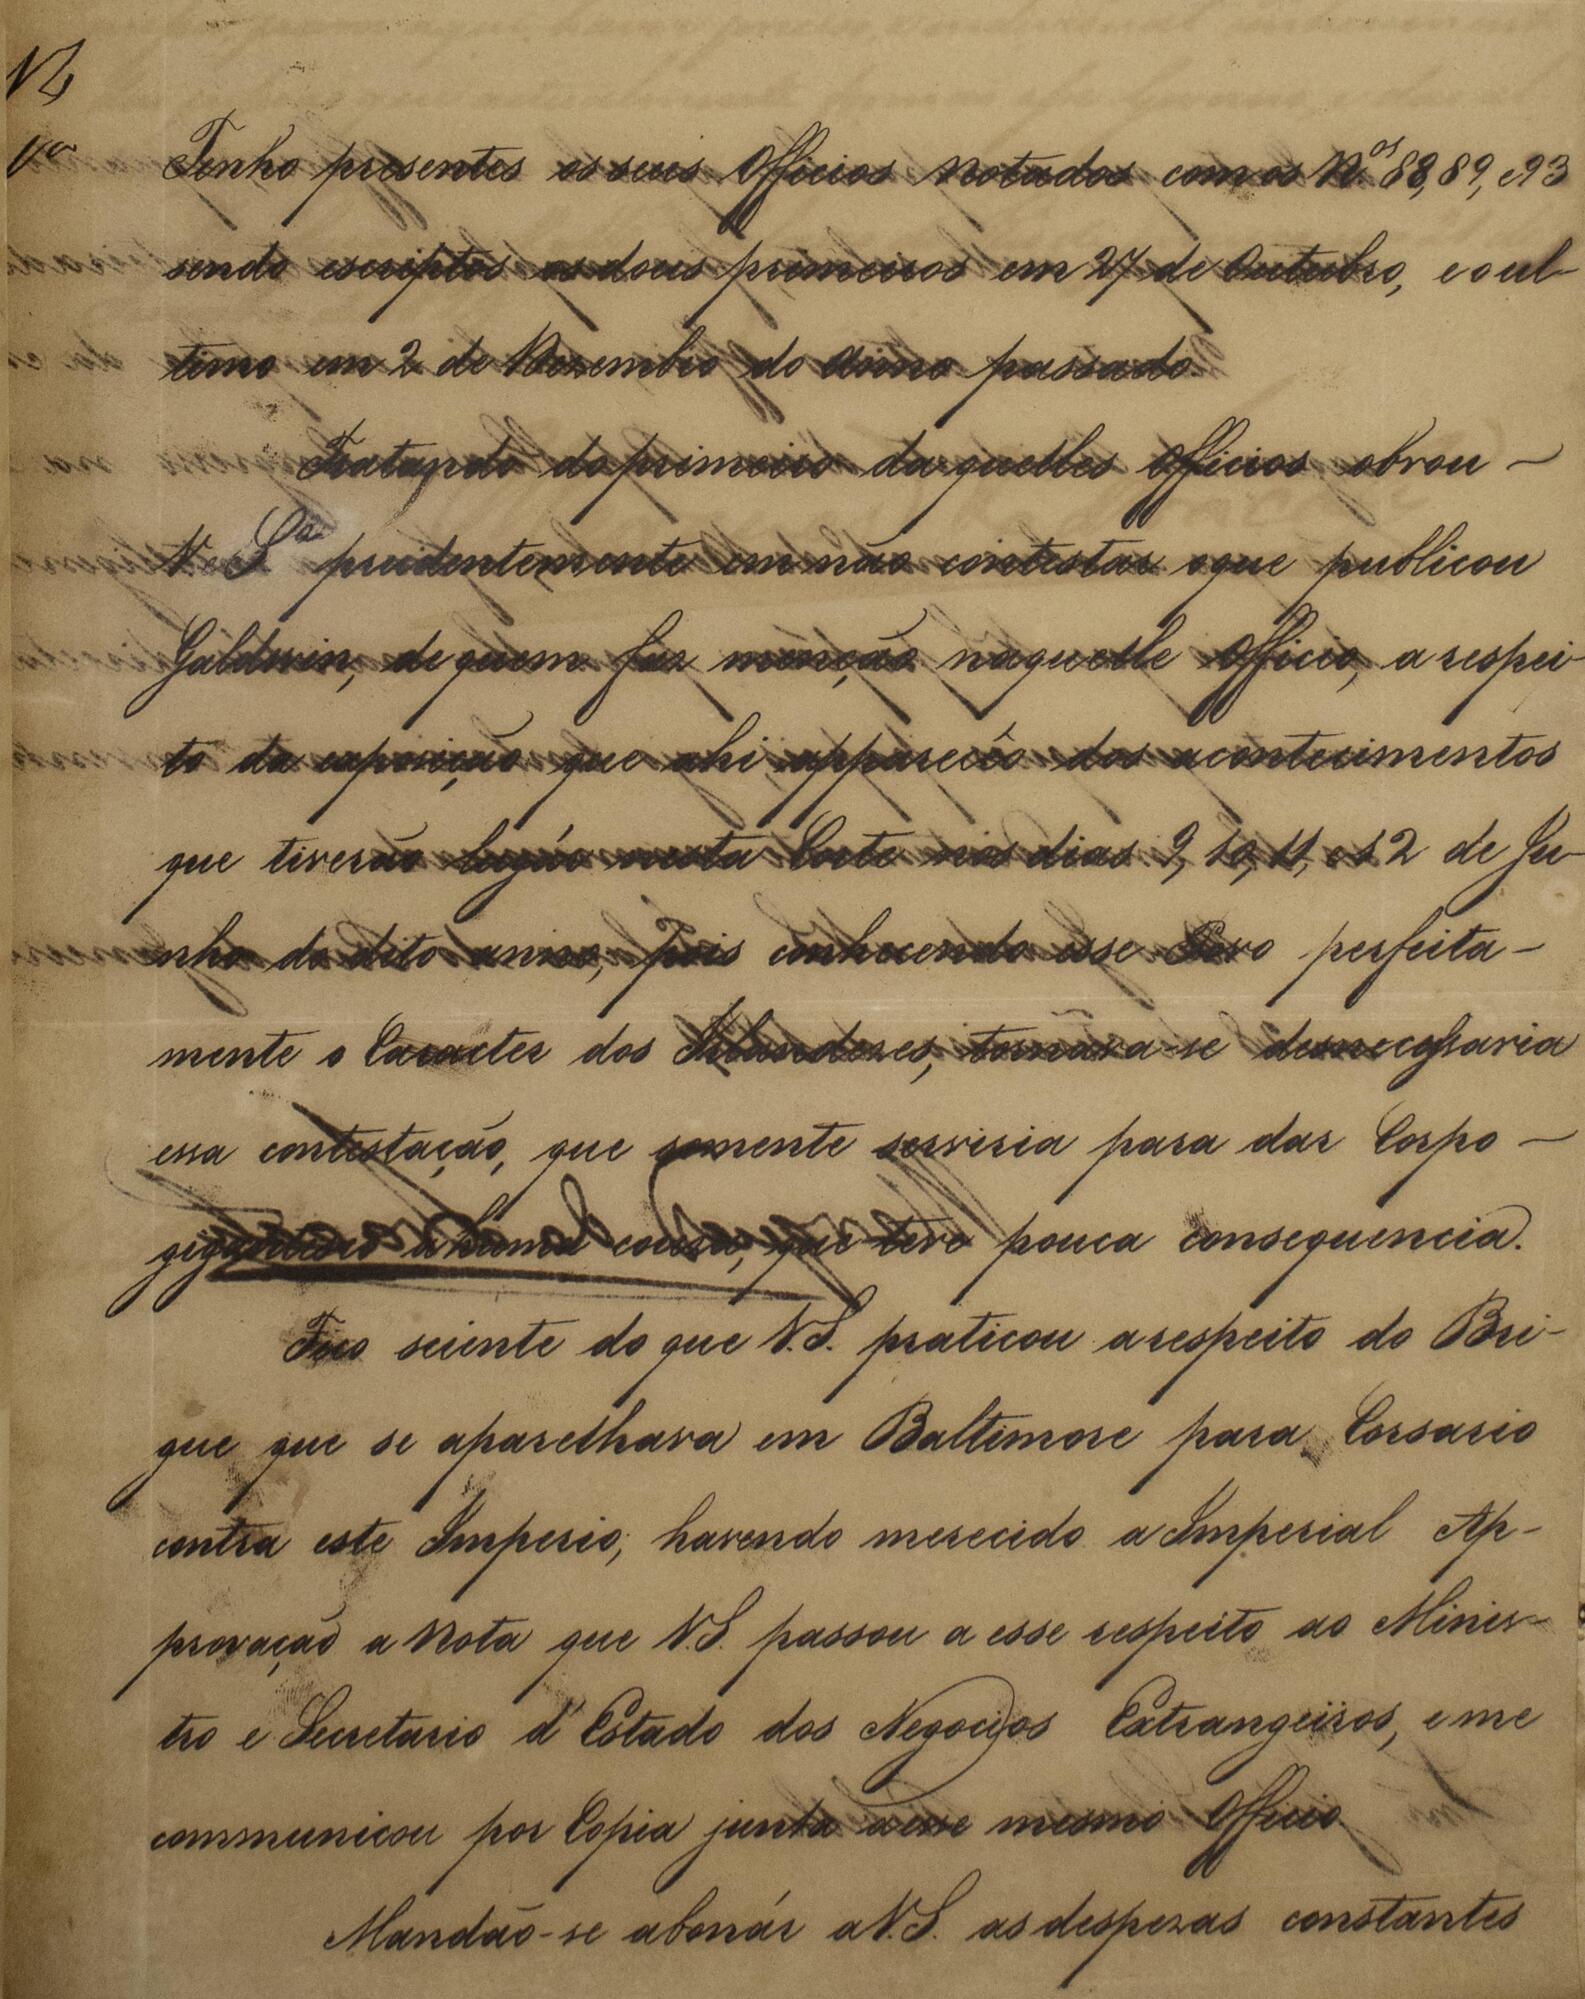 Tenho presentes os seus Officios Notados com os N.os 88, 89, e 93
sendo escriptos os dous primeiros em 27 de Outubro, e o ul-
timo em 2 de Dezembro do Anno passado.
Tratando do primeiro daquelles Officios obrou -
V. S.a prudentemente em não contestar o que publicou
Galdwin, de quem faz menção naquelle Officio, a respei-
to da exposição que ahi apparecêo dos acontecimentos
que tiverão lugár nesta Corte nos dias 9, 10, 11, e 12 de Ju-
nho do dito anno, pois conhecendo esse Povo perfeita-
mente o Caracter dos Irlandezes, tornára-se desnecessaria
essa contestação, que somente serviria para dar Corpo -
gigantesco a huma couza, que teve pouca consequencia.
Fico sciente do que V. S. praticou a respeito do Bri-
gue que se aparelhava em Baltimore para Corsario
contra este Imperio, havendo merecido a Imperial Ap-
provação a Nota que V. S. passou a esse respeito ao Minis-
tro e Secretario d'Estado dos Negocios Extrangeiros, e me
communicou por Copia junta a esse mesmo Officio
Mandão-se abonár a V. S. as despezas constantes